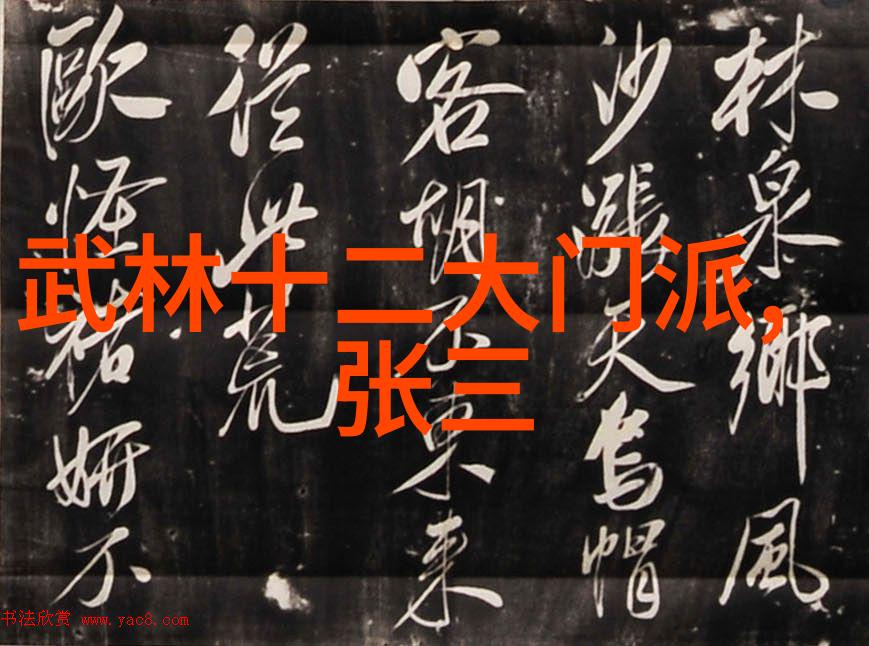 武林十二大门派,
张三
林泉鄉風
沙漲天烏帽
客胡不東來
從此荒
歐怪褚妍不
书法欣赏 www.yac8.com